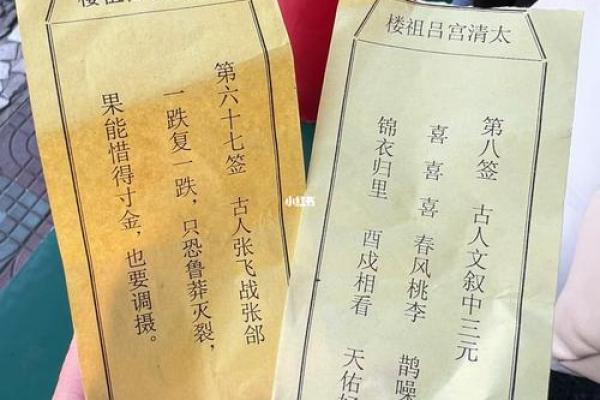 太清宫吕祖楼
第八签 古人文叙中三元
喜喜喜 春风桃李 鹊噪
锦衣归里 酉戍相看 天佑
祖楼
第六十七签 古人张飞战张郃
一跌复一跌，只恐鲁莽灭裂，
果能惜得寸金，也要调摄。
小红书